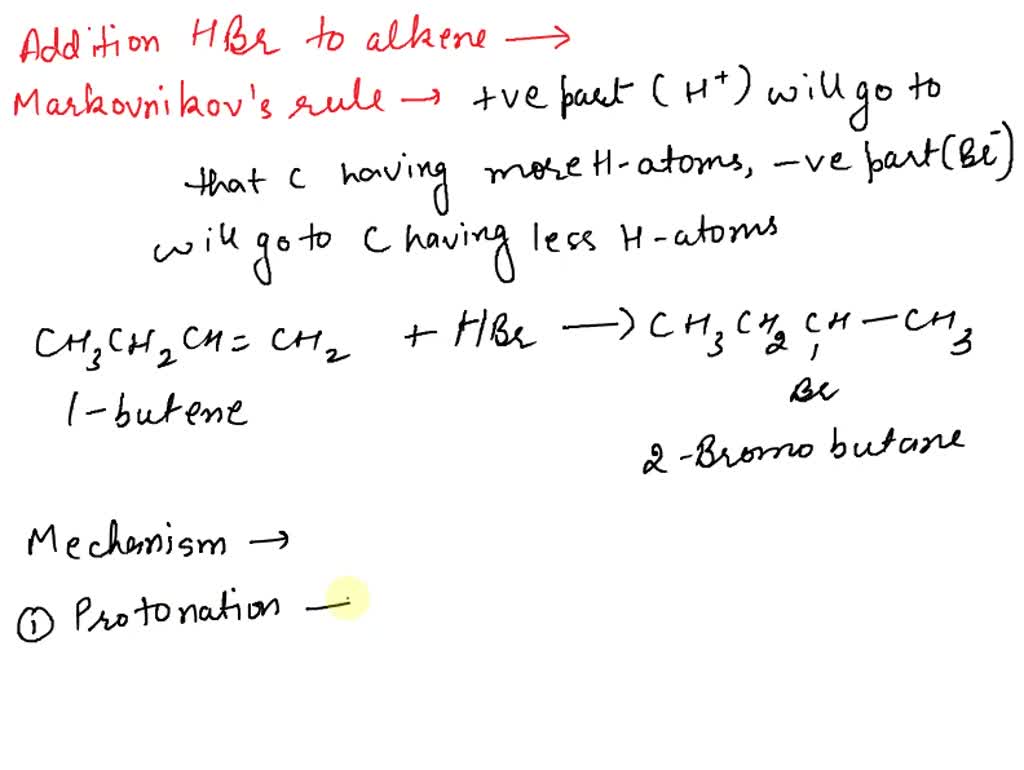 Addition HBr to alkene →
Markovnikov's rule → +ve part (H⁺) will go to
that C having more H-atoms, -ve part (Br⁻)
will go to C having less H-atoms
CH₃CH₂CH=CH₂ + HBr → CH₃CH₂CH-CH₃
Br
1-butene
2-Bromobutane
Mechanism →
① Protonation —